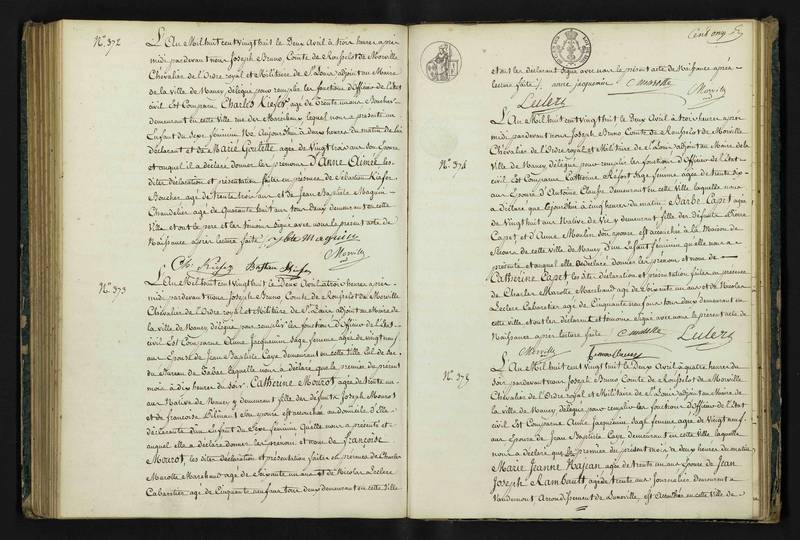 N.º 372
L'An Mil huit cent vingt huit le Deux Avril à trois heures après
midi pardevant nous Joseph Bruno Comte de Rousselot de Morville
Chevalier de l'Ordre royal et Militaire de St Louis adjoint au Maire
de la ville de Nancy délégué pour remplir les fonctions d'officier de l'état
civil Est Comparu Charles Kiefer agé de Trente un ans Boucher
demeurant en cette Ville rue des Maréchaux lequel nous a présenté un
Enfant du sexe féminin Né Aujourd'hui à deux heures du matin de lui
déclarant et de Marie agée de Vingt trois ans son Epouse
et auquel il a déclaré donner les prénoms D'Anne Aimée les
dites déclaration et présentation faites en présence de Sébastien Kiefer
Boucher agé de trente trois ans et de Jean Baptiste Maguin
Chandelier agé de Quarante huit ans tous Deux demeurant en cette
Ville et ont le père et les témoins signé avec nous le présent acte de
Naissance après lecture faite, jbte Maguin
Morville
Ch. Kiefer Bastien Kiefer
N.º 373
L'An Mil huit cent vingt huit le Deux Avril à trois heures après
midi pardevant nous Joseph Bruno Comte de Rousselot de Morville
Chevalier de l'Ordre royal et Militaire de St Louis adjoint au Maire de
la ville de Nancy délégué pour remplir les fonctions d'officier de l'état
civil Est Comparue Anne Jacquemin Sage femme agée de vingt neuf
ans Epouse de Jean Baptiste Caye demeurant en cette Ville
du Bureau de Tabac laquelle nous a déclaré que le premier du présent
mois à dix heures du soir Catherine Mourot agée de trente un
ans Native de Nancy y demeurant fille des défunts Joseph Mourot
et de françoise son épouse est accouchée au domicile d'elle
déclarante d'un Enfant du Sexe féminin Qu'elle nous a présenté et
auquel elle a déclaré donner les prénom et nom de françoise
Mourot, les dites déclaration et présentation faites en présence de Charles
Marotte Marchand agé de Soixante un ans et de Nicolas Leclerc
Cabaretier agé de Cinquante neuf ans tous deux demeurant en cette Ville
et ont les déclarant signé avec nous le présent acte de Naissance après
lecture faite, anne jacquemin C marotte
Leclerc Morville
N.º 374
L'An Mil huit cent vingt huit le Deux Avril à trois heures après
midi pardevant nous Joseph Bruno Comte de Rousselot de Morville
Chevalier de l'Ordre royal et Militaire de St Louis adjoint au Maire de la
Ville de Nancy délégué pour remplir les fonctions d'officier de l'état
civil Est Comparue Catherine Sage femme agée de trente
ans Epouse d'Antoine demeurant en cette Ville laquelle nous
a déclaré que Aujourd'hui à cinq heures du matin Barbe Capet agée
de Vingt huit ans Native de Vic y demeurant fille des défunts
Capet et d'Anne Moulin son épouse est accouchée à la Maison de
Secours de cette ville de Nancy D'un Enfant féminin qu'elle nous a
présenté et auquel elle a déclaré donner les prénom et nom de
Catherine Capet les dites déclaration et présentation faites en présence
de Charles Marotte Marchand agé de Soixante un ans et de Nicolas
Leclerc Cabaretier agé de Cinquante neuf ans tous deux demeurant en
cette ville et ont les déclarant et témoins signé avec nous le présent acte de
Naissance après lecture faite C marotte Leclerc
Morville
N.º 375
L'An Mil huit cent vingt huit le Deux Avril à quatre heures du
Soir pardevant nous Joseph Bruno Comte de Rousselot de Morville
Chevalier de l'Ordre royal et Militaire de St Louis adjoint au Maire de
la ville de Nancy délégué pour remplir les fonctions d'officier de l'état
civil Est Comparue Anne Jacquemin Sage femme agée de Vingt neuf
ans Epouse de Jean Baptiste Caye demeurant en cette Ville laquelle
nous a déclaré que le premier du présent mois à deux heures du matin
Marie Jeanne agée de trente un ans épouse de Jean
Joseph Rambault, agé de trente ans Journalier demeurant à
Vaudémont Arrondissement de Lunéville, est accouchée en cette Ville de